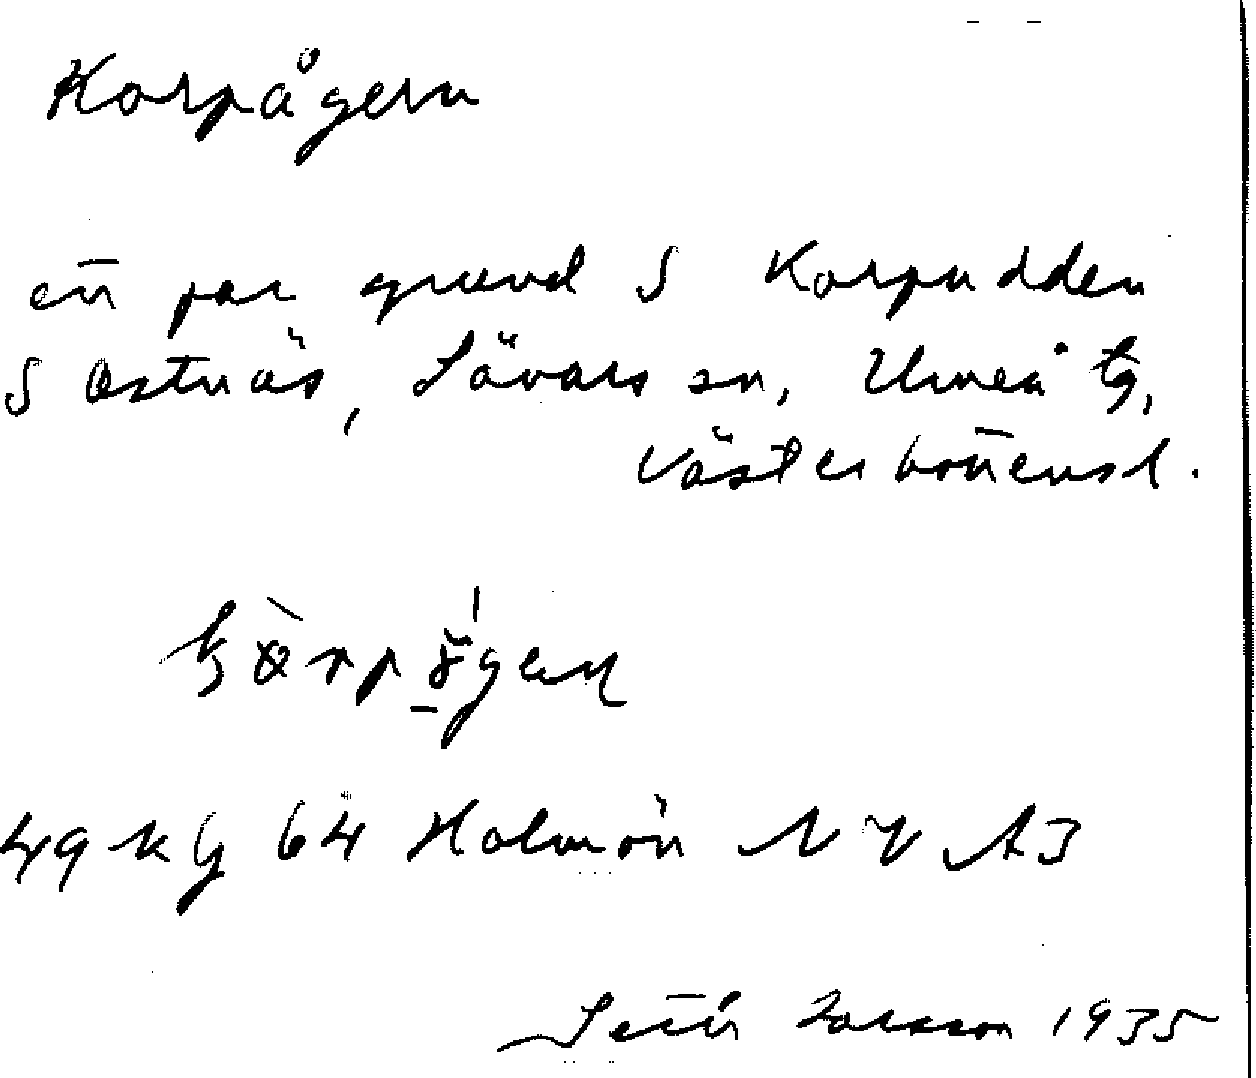 Korpågern
en̄ par grund S Korpudden
S Ostnäs, Sävars sn, Umeå tg,
Västerbott̄ensl.
49 kg 64 Holmön NV A3
Larsson 1935